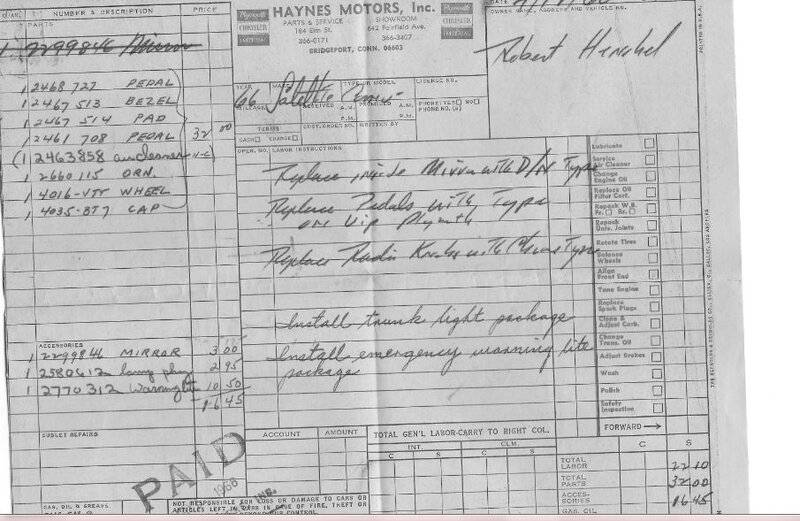 QUAN.
NUMBER & DESCRIPTION
PRICE
PARTS
1 2299846 Mirror
1 2468 727 PEDAL
1 2467 513 BEZEL
1 2467 514 PAD
1 2461 708 PEDAL 32 00
(1 2463858 aircleaner N-C)
1 2660 115 ORN.
1 4016-VTT WHEEL
1 4035-8T7 CAP
ACCESSORIES
1 2299846 MIRROR 3 00
1 2580612 lamp pkg 2 95
1 2770312 10 50
16 45
SUBLET REPAIRS
GAS, OIL & GREASE
Plymouth
HAYNES MOTORS, Inc.
PARTS & SERVICE
184 Elm St.
366-0171
SHOWROOM
642 Fairfield Ave.
366-3407
BRIDGEPORT, CONN. 06603
OWNER NAME, ADDRESS AND VEHICLE NO.
Robert Henshel
PRINTED IN U.S.A.
YEAR
MAKE
TYPE OR MODEL
LICENSE NO.
66 Satellite Conv.
MILEAGE
RECEIVED
A.M.
P.M.
PROMISED
A.M.
P.M.
PHONE YES NO
PHONE NO. (S)
TERMS
CASH CHARGE
CUST. ORDER NO.
WRITTEN BY
OPER. NO.
LABOR INSTRUCTIONS
Replace inside Mirror with D/N Type
Replace Pedals with Type
on Vip Plymth
Replace Radio Knobs with Type
Install trunk light package
Install emergency warning lite
package
Lubricate
Service Air Cleaner
Change Engine Oil
Replace Oil Filter Cart.
Repack W.B. Fr. Rr.
Repack Univ. Joints
Rotate Tires
Balance Wheels
Align Front End
Tune Engine
Replace Spark Plugs
Clean & Adjust Carb.
Change Trans. Oil
Adjust Brakes
Wash
Polish
Safety Inspection
FORWARD
ACCOUNT
AMOUNT
TOTAL GEN'L LABOR-CARRY TO RIGHT COL.
INT.
CLM.
C S C S
C S
TOTAL LABOR 22 10
TOTAL PARTS 32 00
ACCESSORIES 16 45
GAS, OIL
PAID
1966
INC.
NOT RESPONSIBLE FOR LOSS OR DAMAGE TO CARS OR
ARTICLES LEFT IN CARS IN CASE OF FIRE, THEFT OR